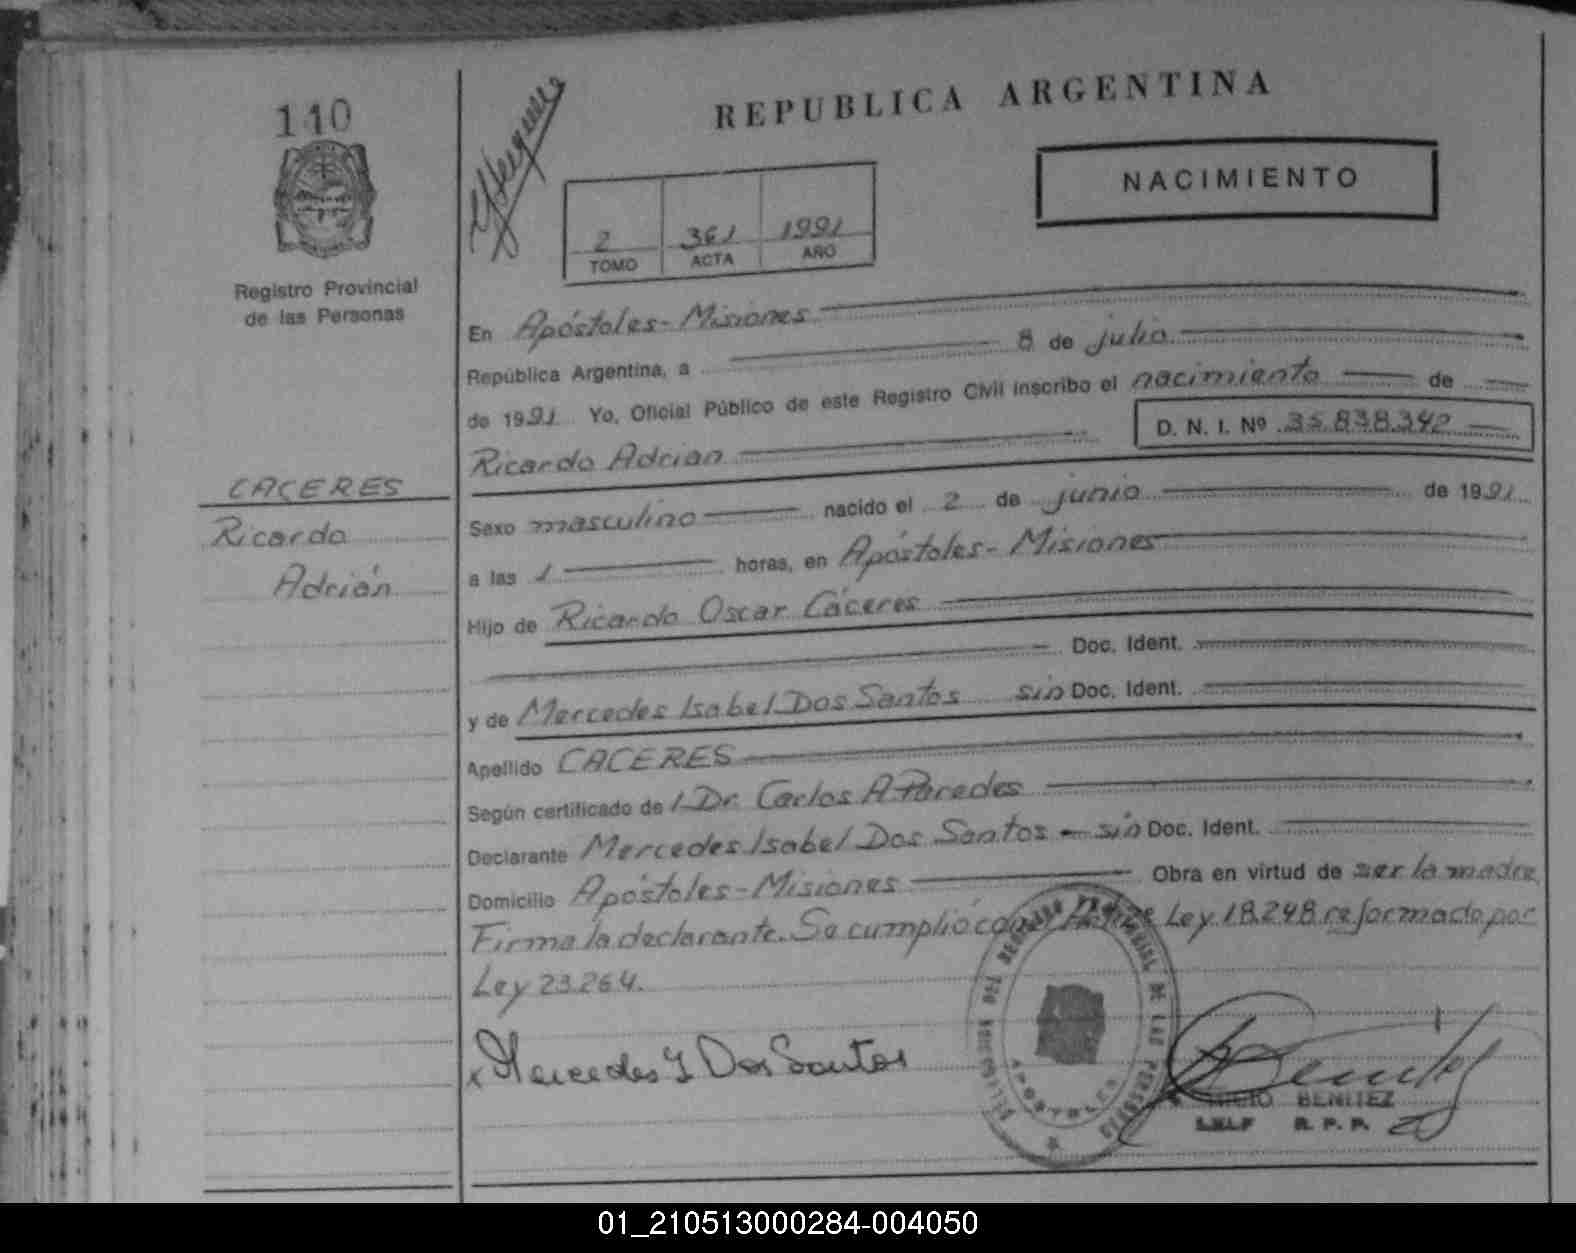 110
REPUBLICA ARGENTINA
NACIMIENTO
2 361 1991
TOMO ACTA AÑO
Registro Provincial
de las Personas
En Apóstoles - Misiones
República Argentina, a 8 de julio
de 1991 Yo, Oficial Público de este Registro Civil inscribo el nacimiento de
D. N. I. Nº 35.838.342
Ricardo Adrian
CACERES
Ricardo
Adrián
Sexo masculino nacido el 2 de junio de 1991
a las 1 horas, en Apóstoles - Misiones
Hijo de Ricardo Oscar Cáceres
Doc. Ident.
y de Mercedes Isabel Dos Santos sin Doc. Ident.
Apellido CACERES
Según certificado del Dr. Carlos A. Paredes
Declarante Mercedes Isabel Dos Santos - sin Doc. Ident.
Domicilio Apóstoles - Misiones Obra en virtud de ser la madre
Firma la declarante. Se cumplió con Ley 18.248 reformado por
Ley 23.264.
Mercedes I Dos Santos
PROVINCIAL DE LAS PERSONAS
APOSTOLES
BENITEZ
R. P. P.
01_210513000284-004050